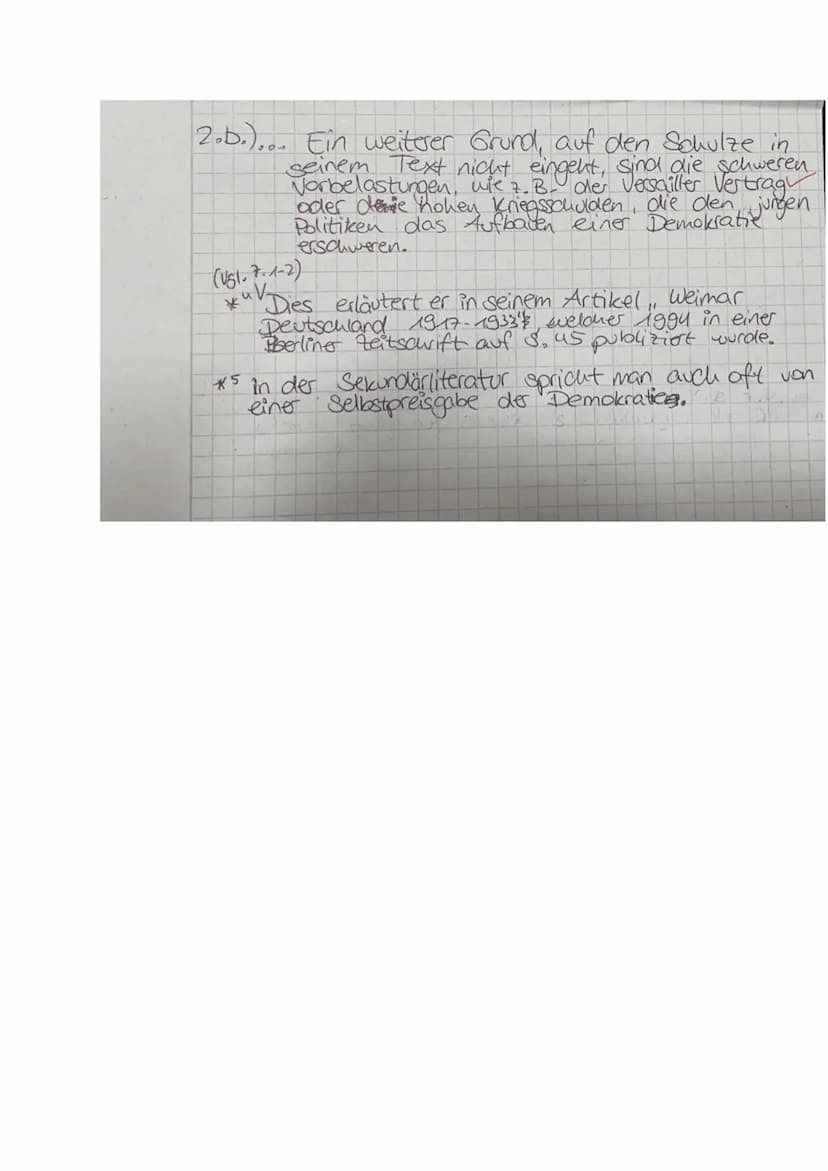 2.b.)... Ein weiterer Grund, auf den Schulze in
seinem Text nicht eingeht, sind die schweren
Vorbelastungen, wie z.B. der Versailler Vertrag
oder die hohen Kriegsschulden, die den jungen
Politiken das Aufbauen einer Demokratie
erschweren.
(vgl. Z. 1-2)
*4 Dies erläutert er in seinem Artikel „Weimar
Deutschland 1917-1933“, welcher 1994 in einer
Berliner Zeitschrift auf S. 45 publiziert wurde.
*5 in der Sekundärliteratur spricht man auch oft von
einer Selbstpreisgabe der Demokratie.